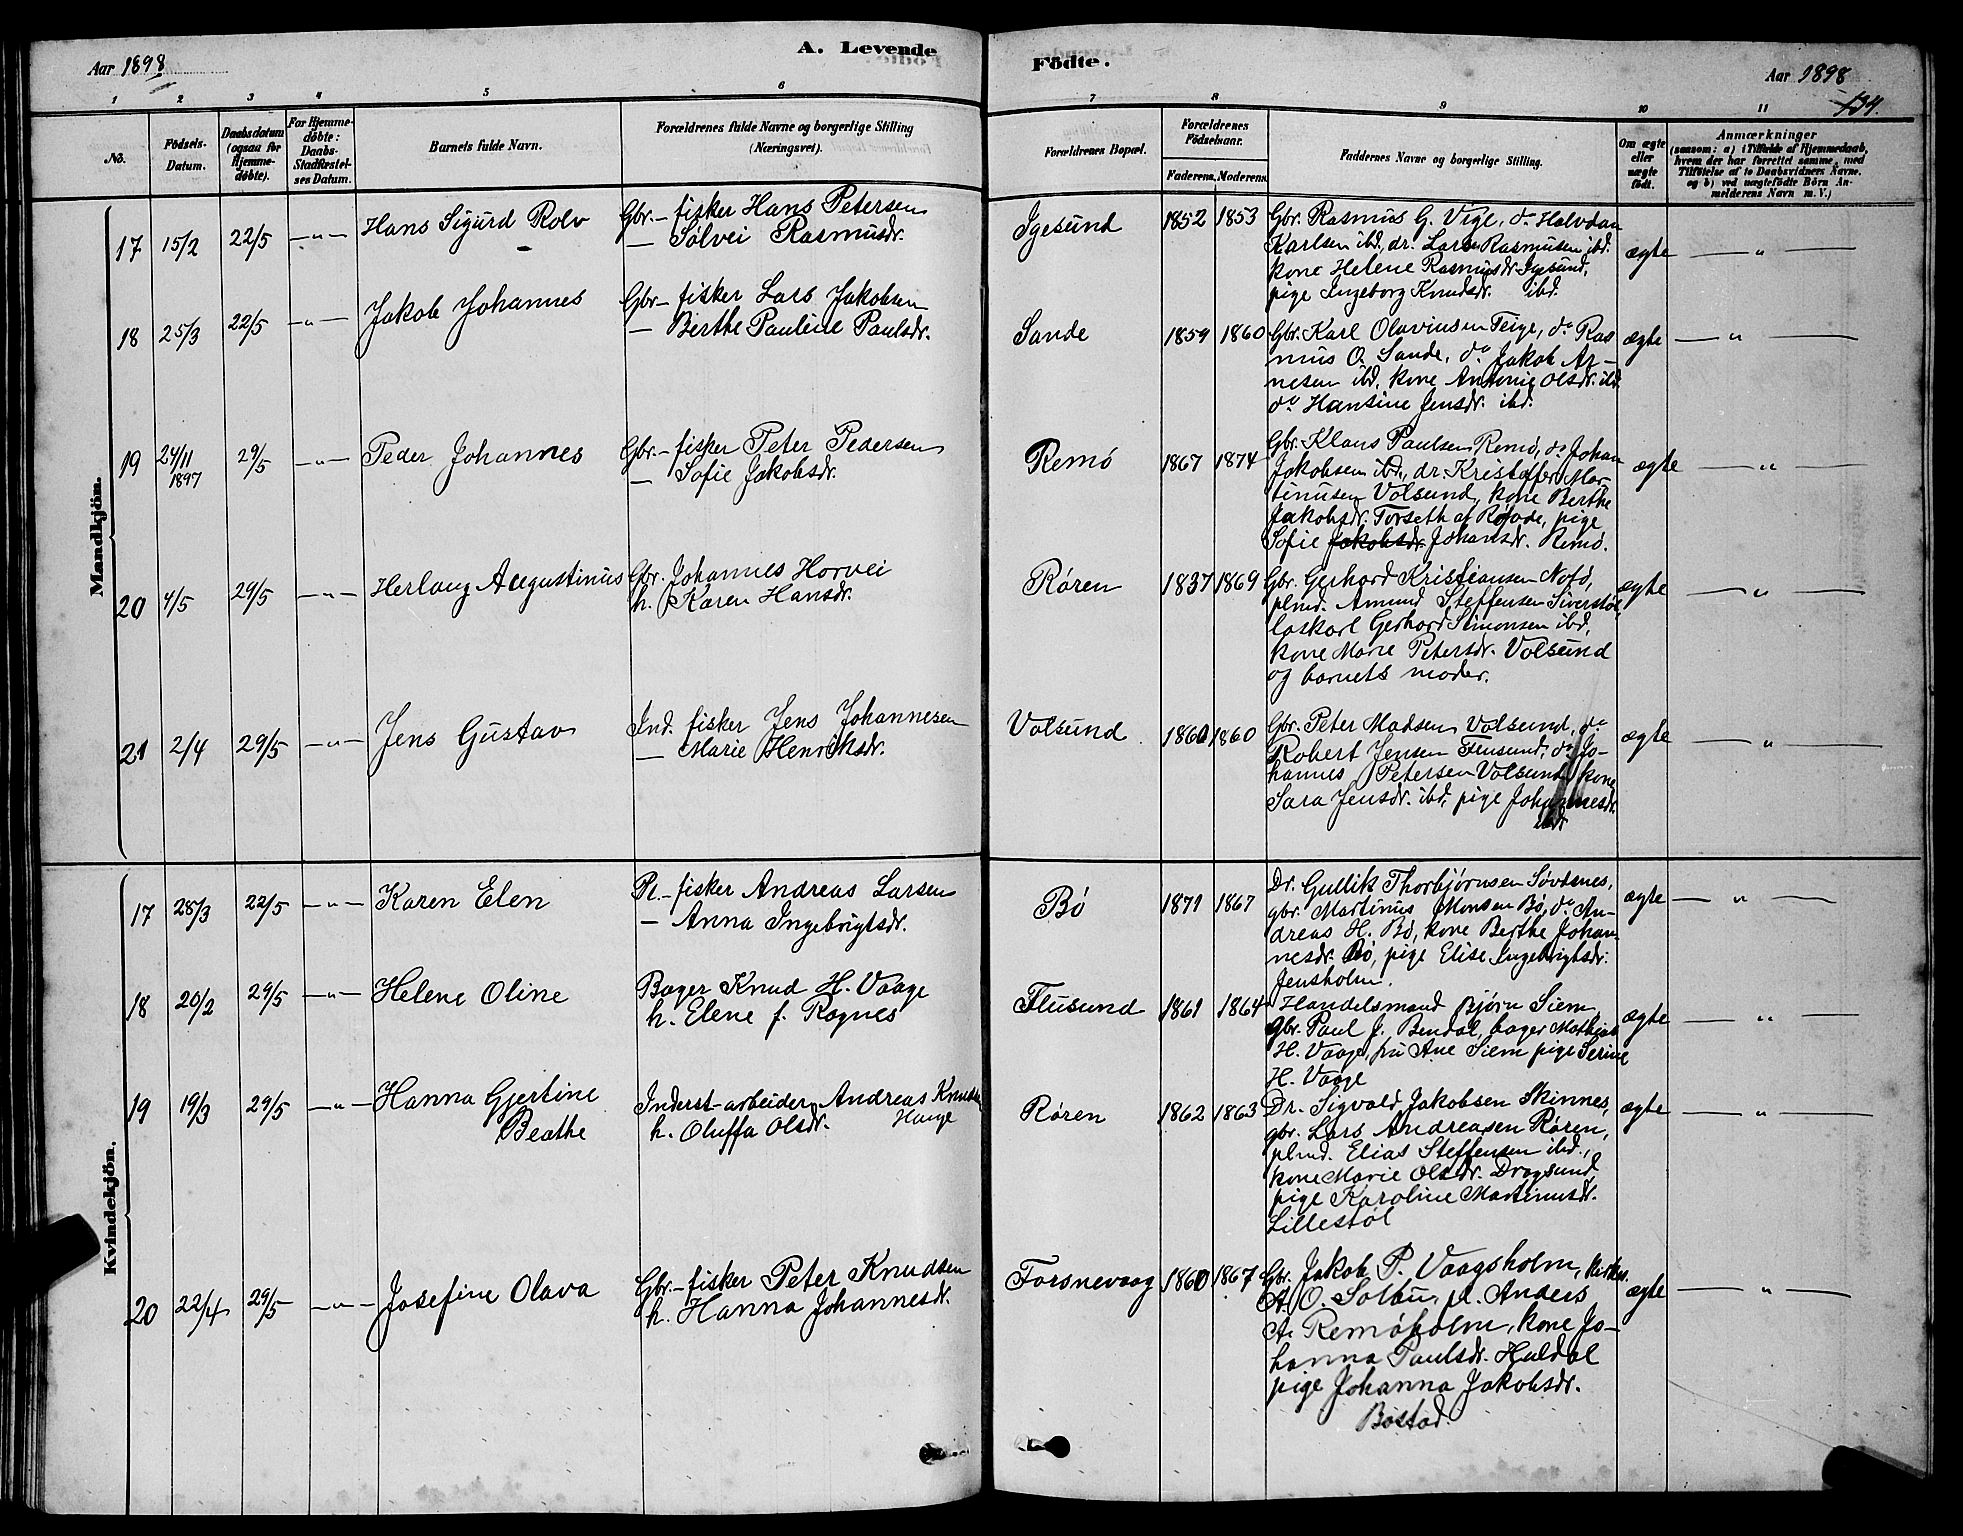 Aar 1898
A. Levende
Födte.
Aar 1898
134.
1 2 3 4 5 6 7 8 9 10 11
No.
Födsels-Datum.
Daabsdatum (ogsaa for Hjemmedöbte).
For Hjemmedöbte: Daabs-Stadfæstelses Datum.
Barnets fulde Navn.
Forældrenes fulde Navne og borgerlige Stilling (Næringsvei).
Forældrenes Bopæl.
Forældrenes Födselsaar.
Faderens. Moderens.
Faddernes Navne og borgerlige Stilling.
Om ægte eller uægte födt.
Anmærkninger
(saasom: a) i Tilfælde af Hjemmedaab, hvem der har forrettet samme, med Tilföielse af to Daabsvidners Navne, og b) ved uægtefödte Börn Anmelderens Navn m. V.)
Mandkjön.
17 15/2 22/5 —"— Hans Sigurd Rolv
Gbr.- fisker Hans Petersen
— Sølvei Rasmusdr.
Igesund 1852 1853
Gbr. Rasmus G. Vige, do Halvdan
Karlsen ibd, dr. Lars Rasmusen ibd.
kone Helene Rasmusdr. Igesund,
pige Ingeborg Knudsdr. ibd.
ægte — " —
18 25/3 22/5 —"— Jakob Johannes
Gbr- fisker Lars Jakobsen
— Berthe Pauline Paulsdr.
Sande 1859 1860
Gbr. Karl Olavinsen Teige, do Ras
mus O. Sande, do Jakob Ar-
nesen ibd, kone Antonie Olsdr. ibd.
do Hansine Jensdr. ibd.
ægte — " —
19 24/11 1897 29/5 —"— Peder Johannes
Gbr.- fisker Peter Pedersen
— Sofie Jakobsdr.
Remö 1867 1874
Gbr. Klaus Paulsen Remö, do Johan
Jakobsen ibd., dr. Kristoffer Mar-
tinusen Volsund, kone Berthe
Jakobsdr. Torseth af Røvde, pige
Sofie Jakobsdr Johansdr. Remö.
ægte — " —
20 4/5 29/5 —"— Herlaug Augustinus
Gbr. Johannes Horvei
h. Karen Hansdr.
Røren 1837 1869
Gbr. Gerhard Kristiansen Nofö,
plmd. Amund Steffensen Siverstøl,
løskarl Gerhard Simonsen ibd,
kone Marie Petersdr. Volsund
og barnets moder.
ægte — " —
21 2/4 29/5 —"— Jens Gustav
Ind. fisker Jens Johannesen
— Marie Henriksdr.
Volsund 1860 1860
Gbr. Peter Madsen Volsund, do
Robert Jensen Flusund, do Jo-
hannes Petersen Volsund, kone
Sara Jensdr. ibd, pige Johannesdr.
ægte — " —
Kvindekjön.
17 28/3 22/5 —"— Karen Elen
Pl.- fisker Andreas Larsen
— Anna Ingebrigtsdr.
Bö 1871 1867
Dr. Gullik Thorbjørnsen Søvdsnes,
gbr. Martinus Monsen Bö, do An-
dreas H. Bö, kone Berthe Johan-
nesdr. Bö, pige Elise Ingebrigtsdr.
Jensholm.
ægte — " —
18 20/2 29/5 —"— Helene Oline
Bager Knud H. Vaage
h. Elene f. Ragnes
Flusund 1861 1864
Handelsmand Bjørn Siem
gbr. Paul J. Bendal, bager Mathias
H. Vaage, fru Ane Siem pige Serine
H. Vaage
ægte — " —
19 19/3 29/5 —"— Hanna Gjertine
Beathe
Inderst-arbeider Andreas Knudsen
Hauge
h. Oluffa Olsdr.
Røren 1862 1863
Dr. Sigvald Jakobsen Skinnes,
gbr. Lars Andreasen Røren,
plmd. Elias Steffensen ibd.,
kone Marie Olsdr. Dragsund
pige Karoline Martinusdr.
Lillestøl
ægte — " —
20 22/4 29/5 —"— Josefine Olava
Gbr- fisker Peter Knudsen
h. Hanna Johannesdr.
Fosnevaag 1860 1867
Gbr. Jakob P. Vaagsholm, kirkes.
A. O. Solbu, pl. Anders
A. Remöholm, kone Jo-
hanna Paulsdr. Huldal
pige Johanna Jakobsdr.
Böstad.
ægte — " —